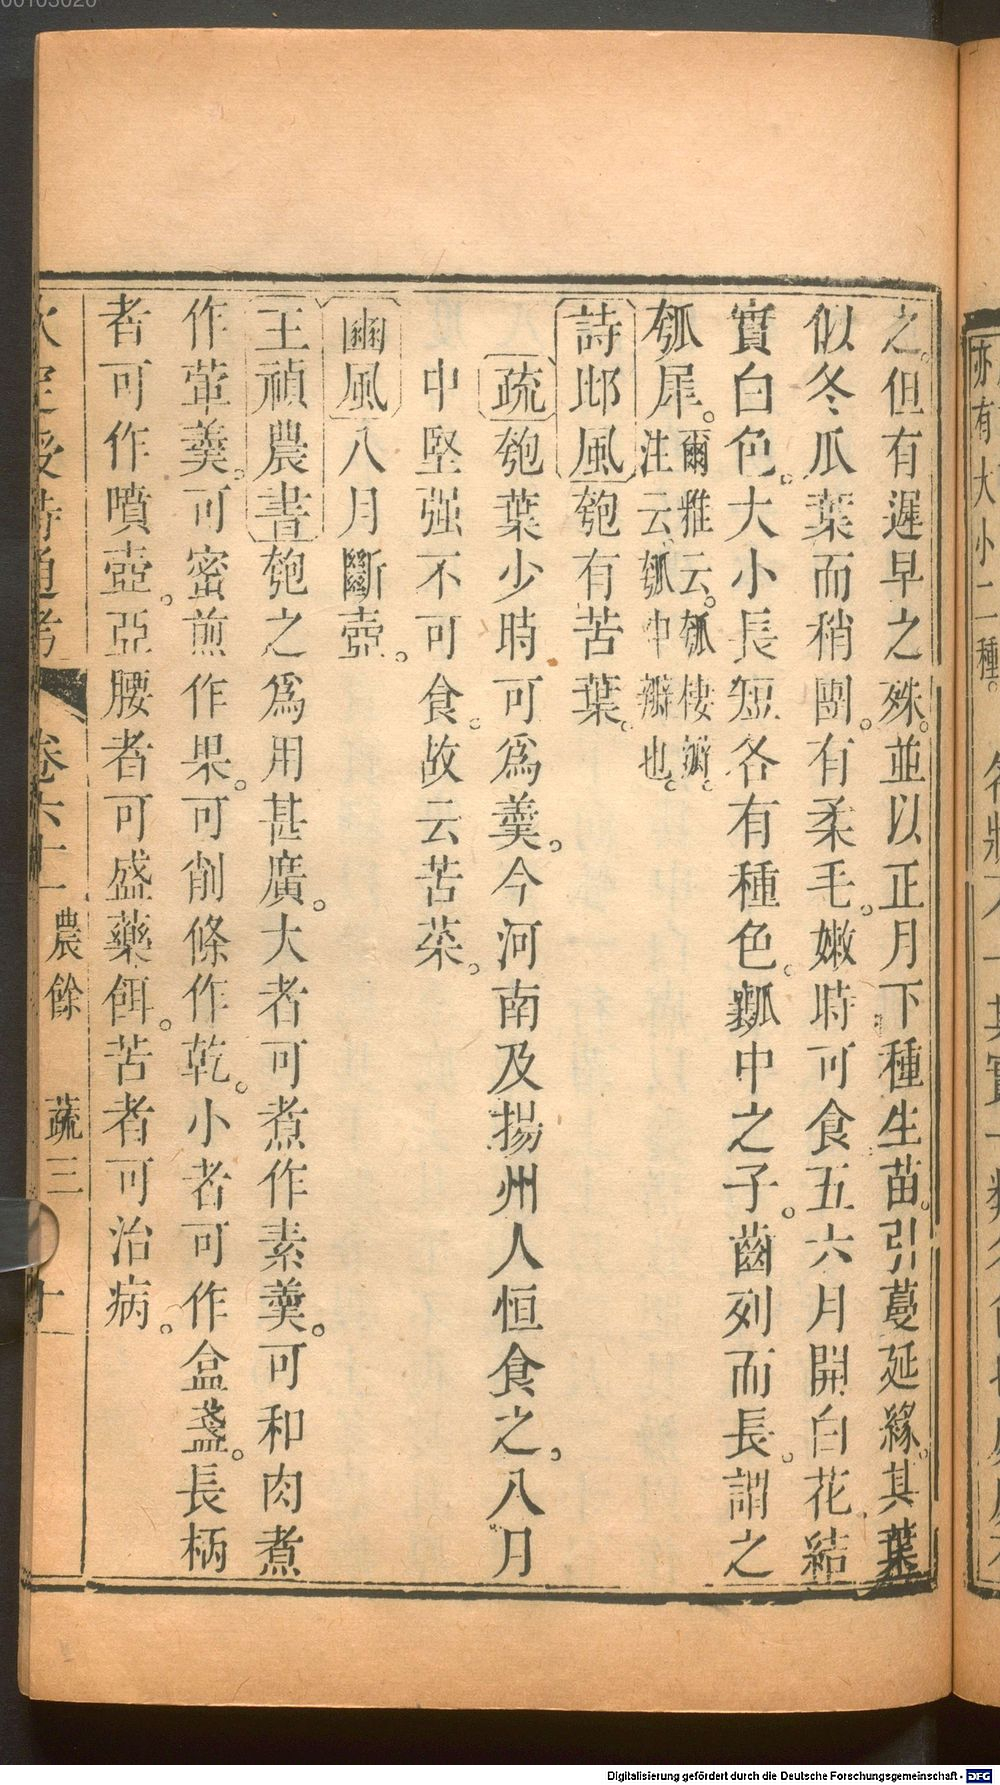 之。但有遲早之殊。並以正月下種。生苗。引蔓延緣。其葉
似冬瓜葉而稍團。有柔毛。嫩時可食。五六月開白花。結
實白色。大小長短各有種色。瓤中之子。齒列而長。謂之
瓠犀。爾雅云。瓠棲瓣。
注云。瓠中瓣也。
詩邶風匏有苦葉。
疏匏葉少時。可爲羹。今河南及揚州人恒食之。八月
中堅强不可食。故云苦菜。
豳風八月斷壺。
王禎農書匏之爲用甚廣。大者可煮作素羹。可和肉煮
作葷羹。可蜜煎作果。可削條作乾。小者可作盒盞。長柄
者可作噴壺。亞腰者可盛藥餌。苦者可治病。
欽定授時通考 卷六十一 農餘 蔬三 十
亦有大小二種。
Digitalisierung gefördert durch die Deutsche Forschungsgemeinschaft - DFG